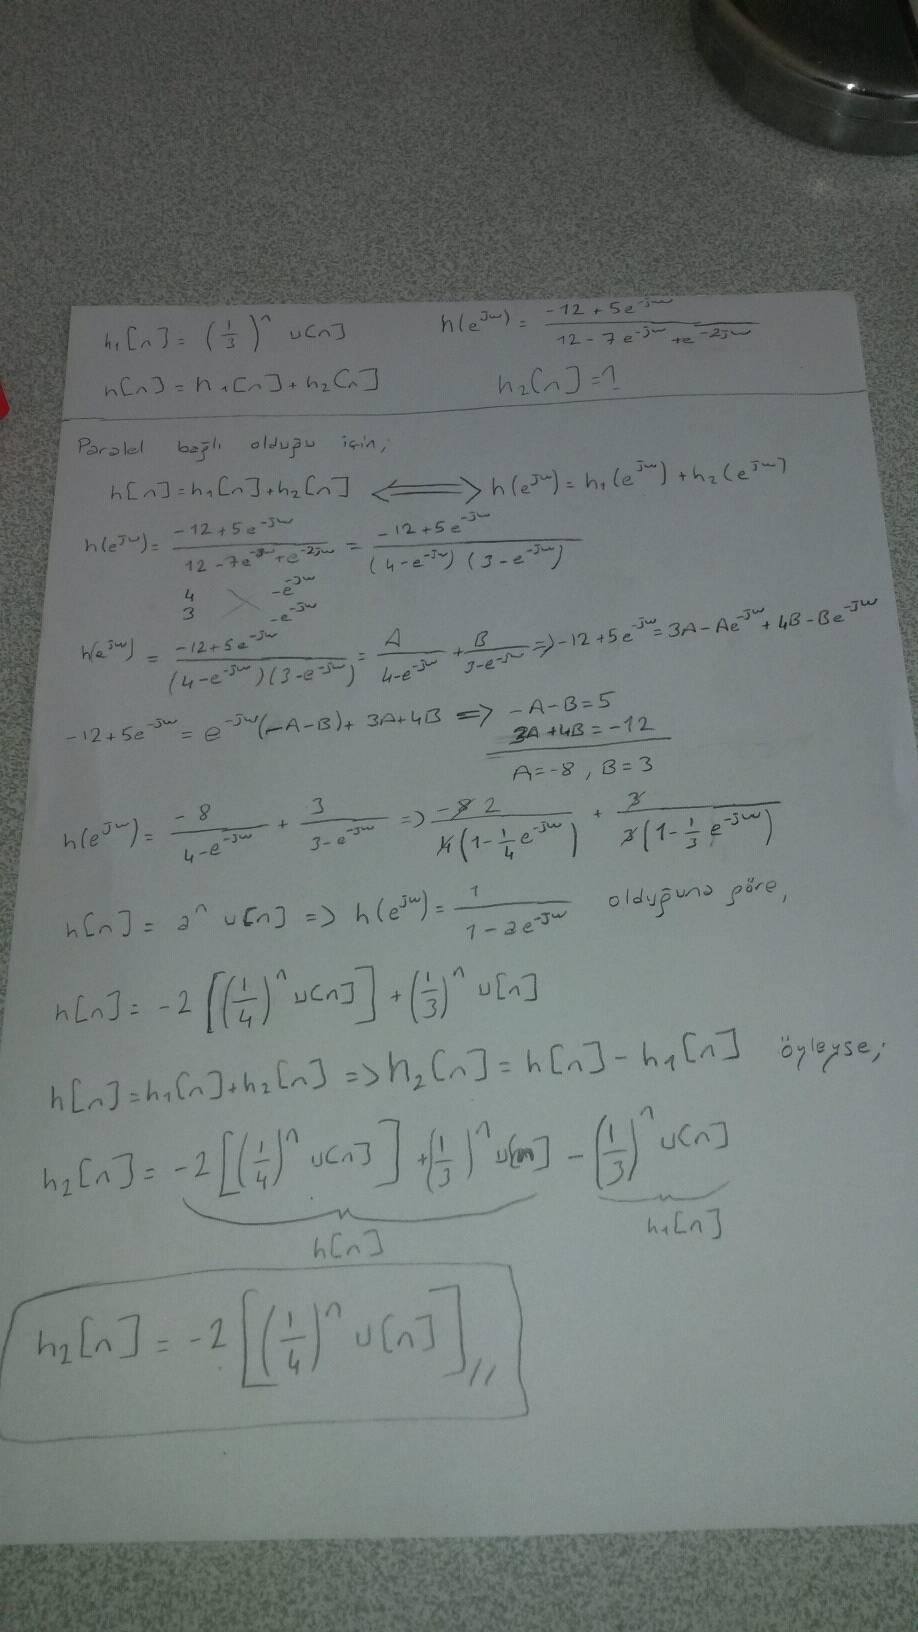 h₁[n] = (1/3)ⁿ u[n]    h(e^jw) = (-12+5e^-jw)/(12-7e^-jw+e^-2jw)
h[n] = h₁[n]+h₂[n]    h₂[n]=?
Paralel bağlı olduğu için,
h[n]=h₁[n]+h₂[n] ⟺ h(e^jw)=h₁(e^jw)+h₂(e^jw)
h(e^jw)= (-12+5e^-jw)/(12-7e^-jw+e^-2jw) = (-12+5e^-jw)/((4-e^-jw)(3-e^-jw))
4 -e^-jw
3 -e^-jw
h(e^jw) = (-12+5e^-jw)/((4-e^-jw)(3-e^-jw)) = A/(4-e^-jw) + B/(3-e^-jw) ⇒ -12+5e^-jw = 3A-Ae^-jw+4B-Be^-jw
-12+5e^-jw = e^-jw(-A-B)+3A+4B ⇒ -A-B=5
3A+4B=-12
A=-8, B=3
h(e^jw)= -8/(4-e^-jw) + 3/(3-e^-jw) ⇒ -8 2/(4(1-1/4 e^-jw)) + 3/(3(1-1/3 e^-jw))
h[n] = aⁿ u[n] ⇒ h(e^jw)= 1/(1-ae^-jw) olduğuna göre,
h[n] = -2[(1/4)ⁿ u[n]]+(1/3)ⁿ u[n]
h[n]=h₁[n]+h₂[n] ⇒ h₂[n]=h[n]-h₁[n] öyleyse;
h₂[n]= -2[(1/4)ⁿ u[n]]+(1/3)ⁿ u[n] - (1/3)ⁿ u[n]
h[n]    h₁[n]
h₂[n] = -2[(1/4)ⁿ u[n]]//